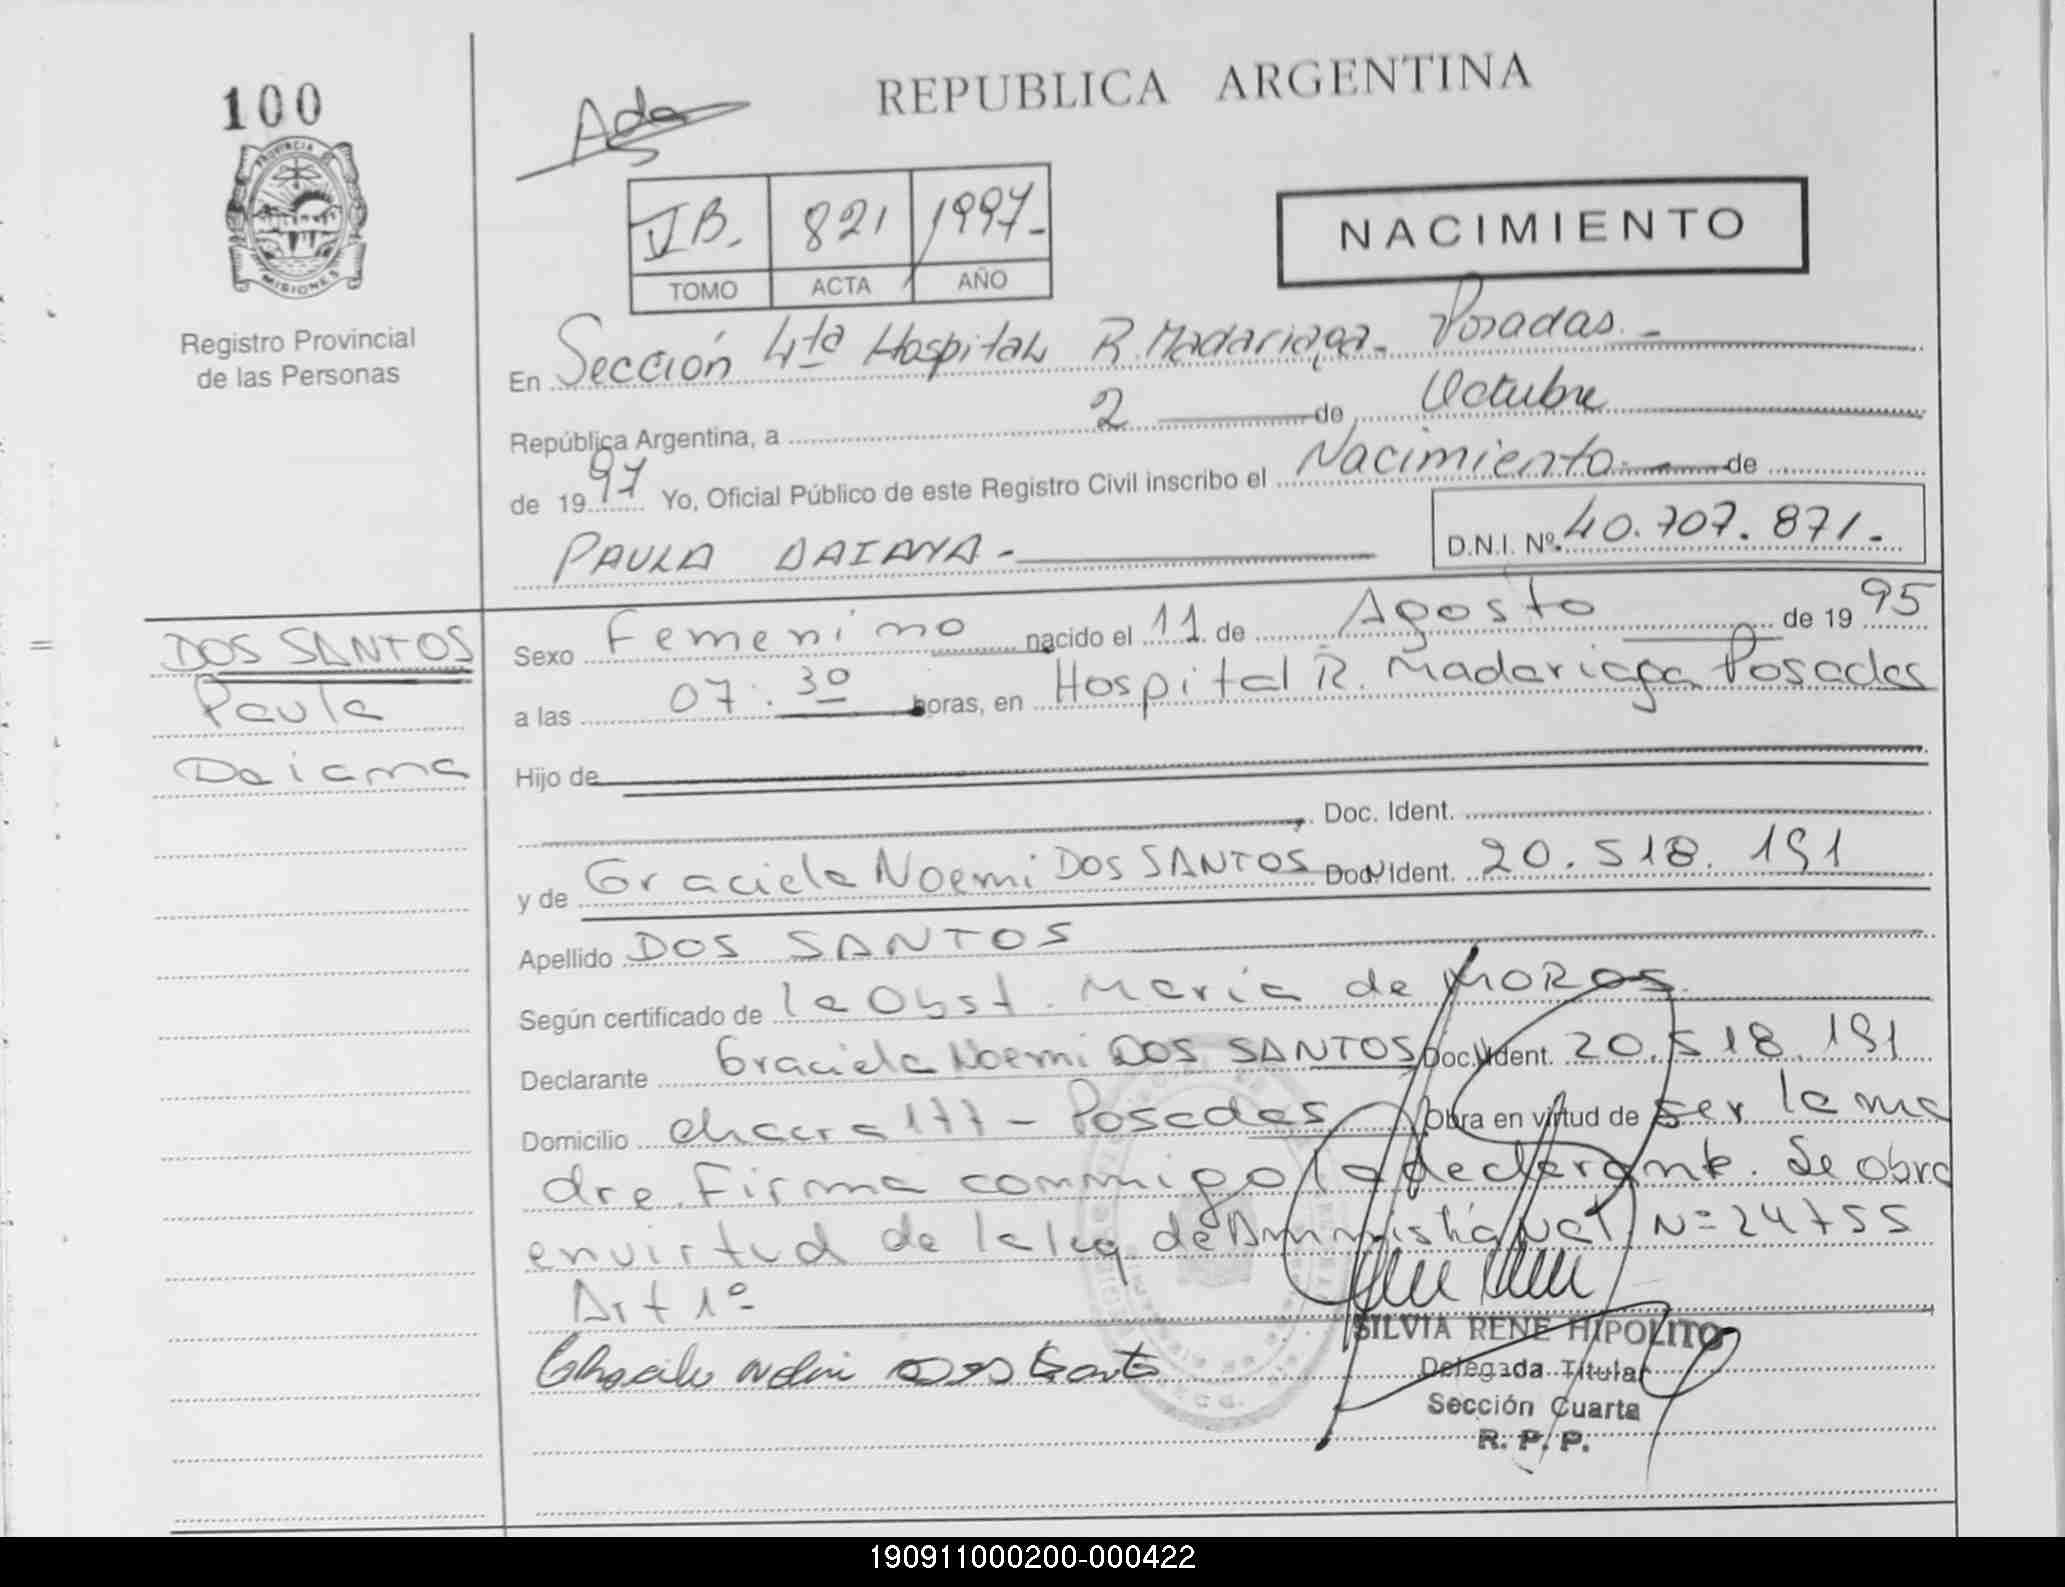 100
PROVINCIA DE
MISIONES
Registro Provincial
de las Personas
REPUBLICA ARGENTINA
VB. 821 1997-
TOMO ACTA AÑO
NACIMIENTO
En Sección 4ta Hospital R. Madariaga - Posadas. -
República Argentina, a 2 de Octubre
de 1997 Yo, Oficial Público de este Registro Civil inscribo el Nacimiento de
PAULA DAIANA - D.N.I. Nº 40.707.871.-
DOS SANTOS
Paula
Daiana
Sexo Femenino nacido el 11 de Agosto de 1995
a las 07:30 horas, en Hospital R. Madariaga Posadas
Hijo de
Doc. Ident.
y de Graciela Noemi DOS SANTOS Doc. Ident. 20.518.191
Apellido DOS SANTOS
Según certificado de la Obst. Maria de MOROS.
Declarante Graciela Noemi DOS SANTOS Doc. Ident. 20.518.191
Domicilio chacra 177 - Posadas Obra en virtud de ser la ma
dre. Firma conmigo la declarante. Se obra
en virtud de la ley de Amnistia Nº 24755
Art 1º
SILVIA RENE HIPOLITO
Delegada Titular
Sección Cuarta
R. P. P.
190911000200-000422